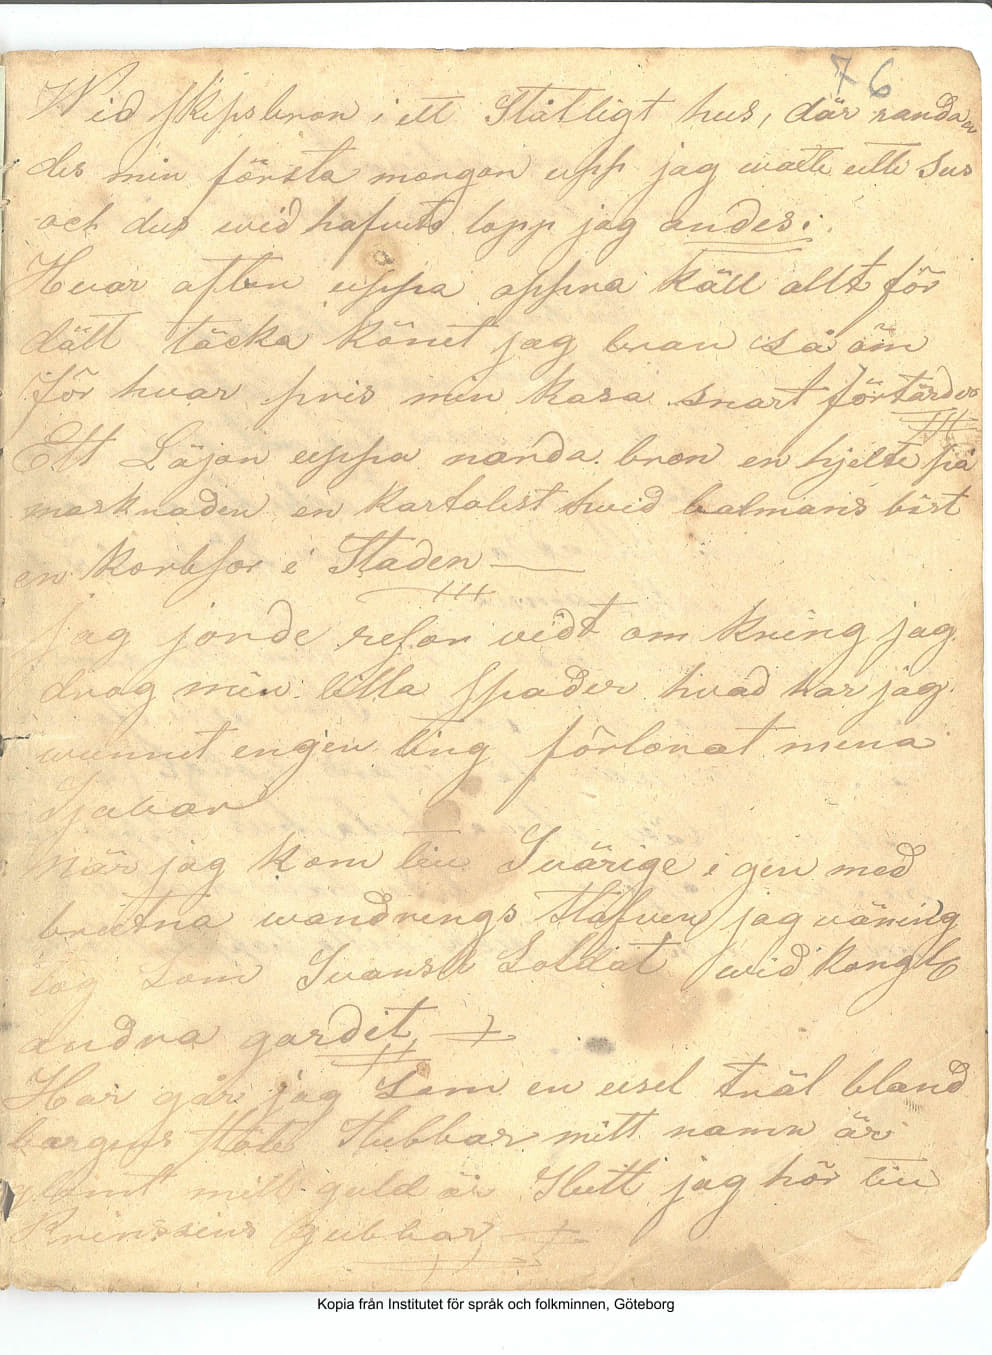 76
Wid skipsbron i ett Ståtligt hus, där randa
des min första morgon upp jag waxte utti Sus
och dus wid hafvets lopp jag andes.
Hvar afton uppa oppna käll allt för
dätt täcka könet jag bran så öm
för hvar pris min kasa snart förtärdes
Ett Läjon uppa norda bron en hjelte på
marknaden en kartolist hwid balmans bist
en korbsor i Staden
jag jorde resor vidt om kring jag
drog min lilla spader hvad har jag
wunnit engen ting förlorat mina
Sjabar
när jag kom till Svärige i gen med
brutna wandrings stafven jag väning
tog som Svansk Soldat wid kongl
andra gardit
Har går jag Som en usel träl bland
bargens Stöte Stubbar mitt namn är
glömt mitt guld är Slutt jag hör till
Prinssens gubbar
Kopia från Institutet för språk och folkminnen, Göteborg